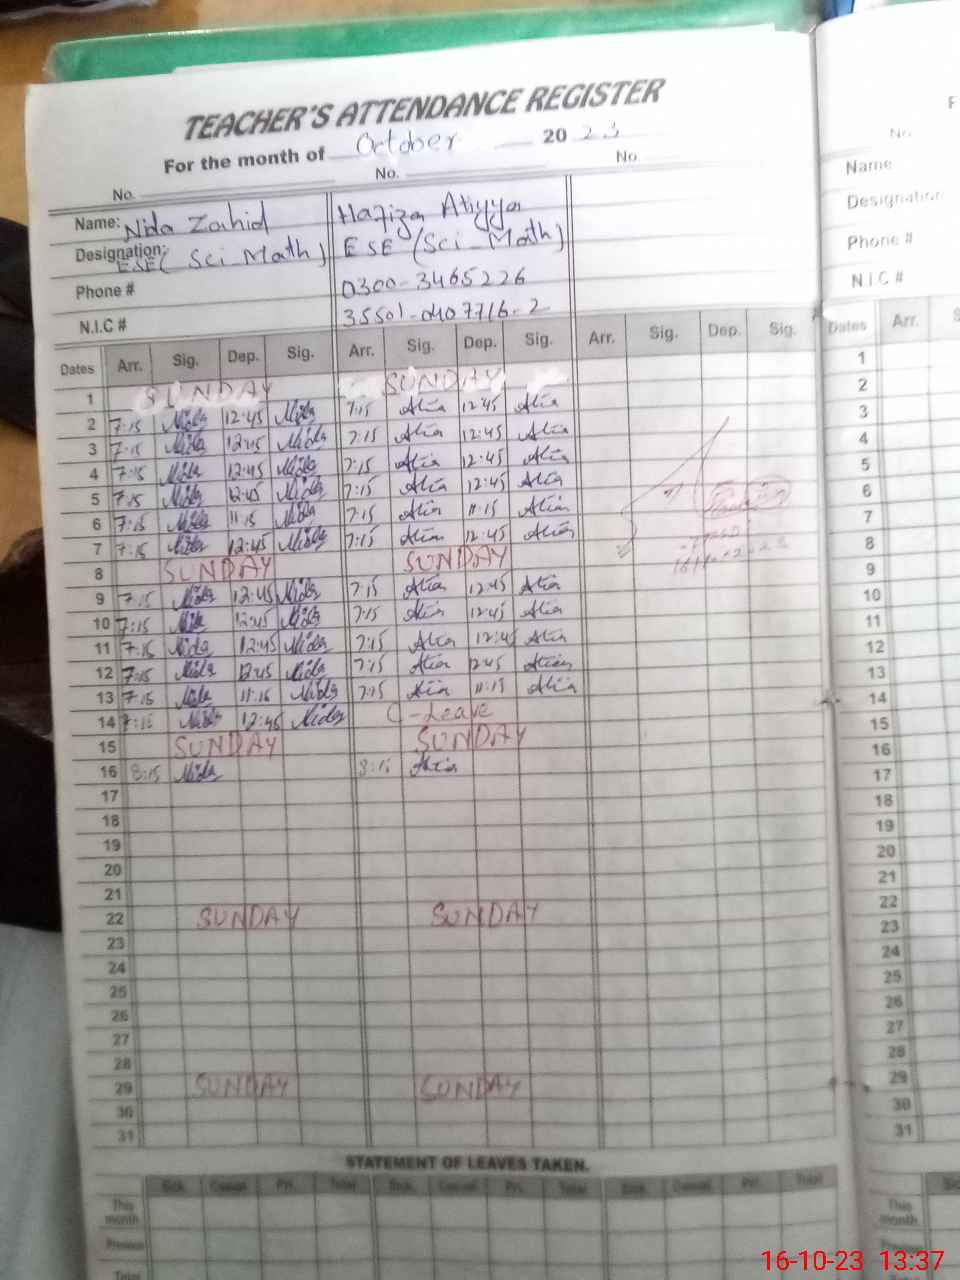 TEACHER'S ATTENDANCE REGISTER
For the month of October 2023
No. No. No.
Name: Nida Zahid Hafiza Atiyya
Designation: ESE (Sci Math) ESE (Sci-Math)
Phone # 0300-3465226
N.I.C # 35501-0407716-2
Dates Arr. Sig. Dep. Sig. Arr. Sig. Dep. Sig. Arr. Sig. Dep. Sig.
1 SUNDAY SUNDAY
2 7:15 Nida 12:45 Nida 7:15 Atia 12:45 Atia
3 7:15 Nida 12:45 Nida 7:15 Atia 12:45 Atia
4 7:15 Nida 12:45 Nida 7:15 Atia 12:45 Atia
5 7:15 Nida 12:45 Nida 7:15 Atia 12:45 Atia
6 7:15 Nida 11:15 Nida 7:15 Atia 11:15 Atia
7 7:15 Nida 12:45 Nida 7:15 Atia 12:45 Atia
8 SUNDAY SUNDAY
9 7:15 Nida 12:45 Nida 7:15 Atia 12:45 Atia
10 7:15 Nida 12:45 Nida 7:15 Atia 12:45 Atia
11 7:15 Nida 12:45 Nida 7:15 Atia 12:45 Atia
12 7:15 Nida 12:45 Nida 7:15 Atia 12:45 Atia
13 7:15 Nida 11:15 Nida 7:15 Atia 11:15 Atia
14 7:15 Nida 12:45 Nida C-Leave
15 SUNDAY SUNDAY
16 8:15 Nida 8:15 Atia
17
18
19
20
21
22 SUNDAY SUNDAY
23
24
25
26
27
28
29 SUNDAY SUNDAY
30
31
STATEMENT OF LEAVES TAKEN.
Sick. Casual Pri. Total Sick. Casual Pri. Total Sick. Casual Pri. Total
This month
Previous
Total
F
No.
Name
Designation
Phone #
N.I.C #
Dates Arr. S
1
2
3
4
5
6
7
8
9
10
11
12
13
14
15
16
17
18
19
20
21
22
23
24
25
26
27
28
29
30
31
This month
Previous
Total
16-10-23 13:37